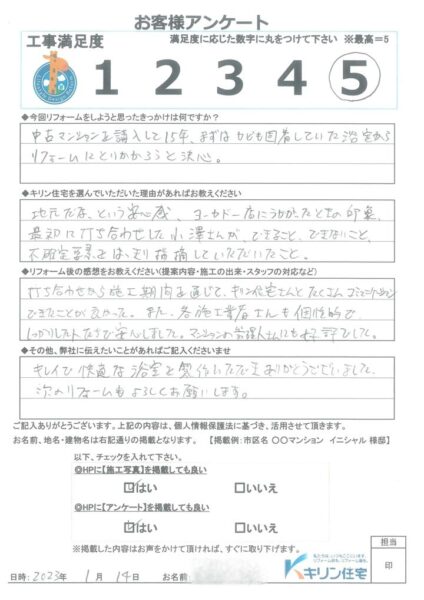 お客様アンケート
工事満足度
満足度に応じた数字に丸をつけて下さい ※最高＝5
1 2 3 4 5
◆今回リフォームをしようと思ったきっかけは何ですか？
中古マンションを購入して15年、まずはカビも固着していた浴室から
リフォームにとりかかろうと決心。
◆キリン住宅を選んでいただいた理由があればお教えください
地元だな、という安心感、ヨーカドー店にうかがったときの印象、
最初に打ち合わせした小澤さんが、できること、できないこと、
不確定要素をはっきり指摘していただいたこと。
◆リフォーム後の感想をお教えください(提案内容・施工の出来・スタッフの対応など)
打ち合わせから施工期間を通じて、キリン住宅さんとたくさんコミュニケーション
できたことが良かった。また、各施工業者さんも個性的で
しっかりした人たちで安心しました。マンションの管理人さんにも好評でした。
◆その他、弊社に伝えたいことがあればご記入くださいませ
キレイで快適な浴室を製作いただきありがとうございました。
次のリフォームもよろしくお願いします。
ご記入ありがとうございます。上記の内容は、個人情報保護法に基づき、活用させて頂きます。
お名前、地名・建物名は右記通りの掲載となります。【掲載例：市区名 〇〇マンション イニシャル 様邸】
以下、チェックを入れて下さい。
◎HPに【施工写真】を掲載しても良い
☑はい □いいえ
◎HPに【アンケート】を掲載しても良い
☑はい □いいえ
※掲載した内容はお声をかけて頂ければ、すぐに取り下げます。
担当
印
キリン住宅
日時：2023年 1月 14日 お名前